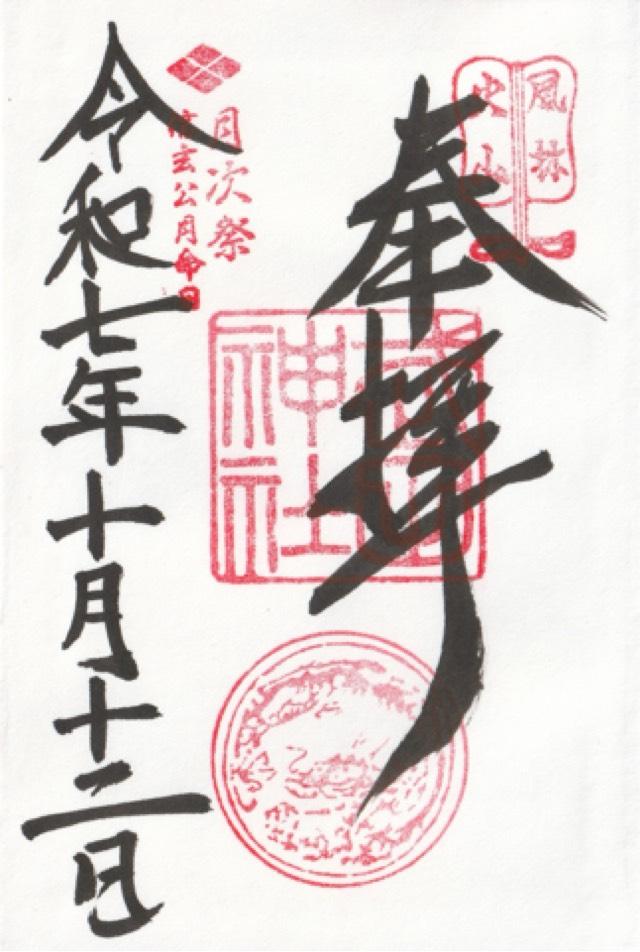 風林
火山
奉拝
武田
神社
月次祭
信玄公月命日
令和七年十月十二日